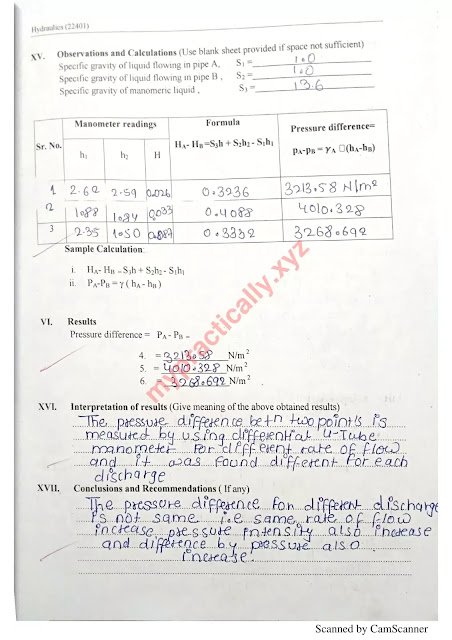 Hydraulics (22401)
XV. Observations and Calculations (Use blank sheet provided if space not sufficient)
Specific gravity of liquid flowing in pipe A, S₁ = 1.0
Specific gravity of liquid flowing in pipe B , S₂ = 1.0
Specific gravity of manomeric liquid , S₃ = 13.6
Sr. No. Manometer readings Formula Pressure difference=
h₁ h₂ H Hᴀ- Hʙ =S₃h + S₂h₂ - S₁h₁ pᴀ-pʙ = γᴀ □(hᴀ-hʙ)
1 2.62 2.59 0.026 0.3236 3213.58 N/m²
2 1.88 1.84 0.033 0.4088 4010.328
3 2.35 0.3332 3268.692
Sample Calculation:
i. Hᴀ- Hʙ = S₃h + S₂h₂ - S₁h₁
ii. Pᴀ-Pʙ = γ ( hᴀ - hʙ )
VI. Results
Pressure difference = Pᴀ - Pʙ =
4. = 3213.58 N/m²
5. = 4010.328 N/m²
6. = 3268.692 N/m²
XVI. Interpretation of results (Give meaning of the above obtained results)
The pressure difference betn two points is
measured by using differential U-Tube
manometer for different rate of flow
and it was found different for each
discharge
XVII. Conclusions and Recommendations ( If any)
The pressure difference for different discharge
is not same i.e same rate of flow
increase pressure intensity also increase
and difference by pressure also
increase.
mypractically.xyz
Scanned by CamScanner